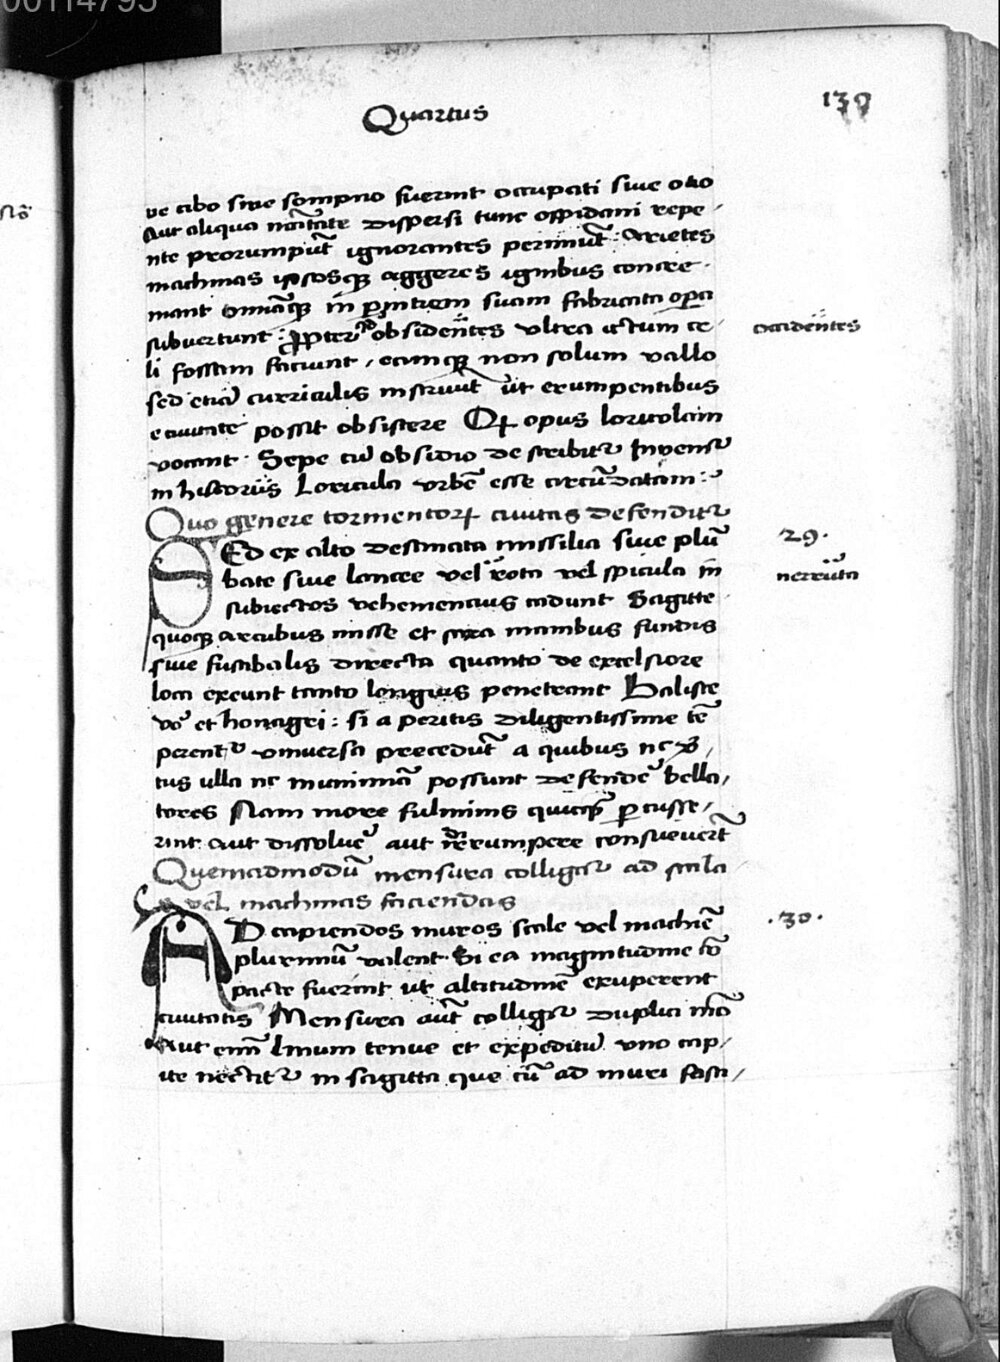 00114795
Quartus
139
ve cibo siue sompno fuerint occupati siue otio
Aut aliqua nc̄itate dispersi tunc oppidani repe-
nte prorumpūt ignorantes perimūt: Arietes
machinas ipsosqꝫ aggeres ignibus concre-
mant omniaqꝫ in ꝑnitiem suam fabricata oꝑa
subuertunt: propter obsidentes vltra ictum te-
li fossam faciunt, eamqꝫ non solum vallo
sed etiā curriculis instruūt ut erumpentibus
e ciuitate possit obsistere Qd opus loricolam
vocant. Sepe cū obsidio describitur Inuenitur
in historiis Loricula vrbē esse circūdatam:
accidentes
Quo genere tormentorꝝ ciuitas defenditur
SEd ex alto destinata missilia siue plū
bate siue lancee vel rota vel spicula in
subiectos vehementius cadunt Sagitte
quoqꝫ arcubus misse et saxa manibus fundis
siue fustibalis directa quanto de excelsiore
loco exeunt tanto longius penetrant Baliste
vo et honagri: si a peritis diligentissime tē
perentur vniuersa precedūt a quibus nc vir
tus ulla nc munimīa possunt defendē bella,
tores Nam more fulminis quicqd ꝑcusse,
rint aut dissoluē aut irrumpere consueuerūt
29.
Quemadmodū mensura colligitur ad scala
s vel machinas faciendas
AD capiendos muros scale vel machīe
plurimū valent. Si ea magnitudine cō
pacte fuerint ut altitudinē exuperent
ciuitatis Mensura aūt colligitur duplici mō
Aut enim linum tenue et expeditū vno cap,
ite nectitur in sagitta que cū ad muri fasti,
.30.